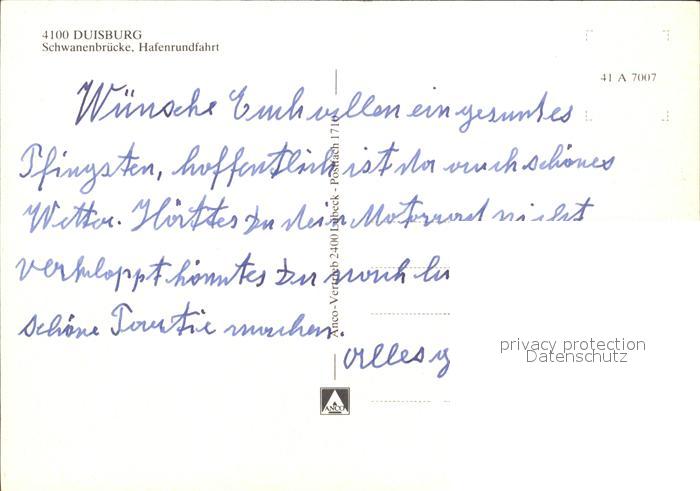 4100 DUISBURG
Schwanenbrücke, Hafenrundfahrt
41 A 7007
Wünsche Euch allen ein gesuntes
Pfingsten, hoffentlich ist da auch schönes
Wetter. Hörttes Du dein Motorrad nicht
verkloppt könntes Du noch
schöne Tourtie machen.
alles g
Anco-Vertrieb 2400 Lübeck - Postfach 1710
ANCO
privacy protection
Datenschutz